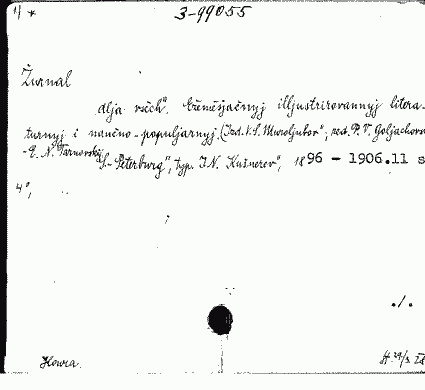 4 *
3-99055
Žurnal
dlja vsěch". Ežeměsjačnyj illjustrirovannyj litera-
turnyj i naučno-populjarnyj. (Izd. V. S. Miroljubov"; red. P. V. Goljachova
- E. N. Tarnovskij
S.-Peterburg", typ. I. N. Kušnerev", 1896 - 1906.11 s
4°,
./.